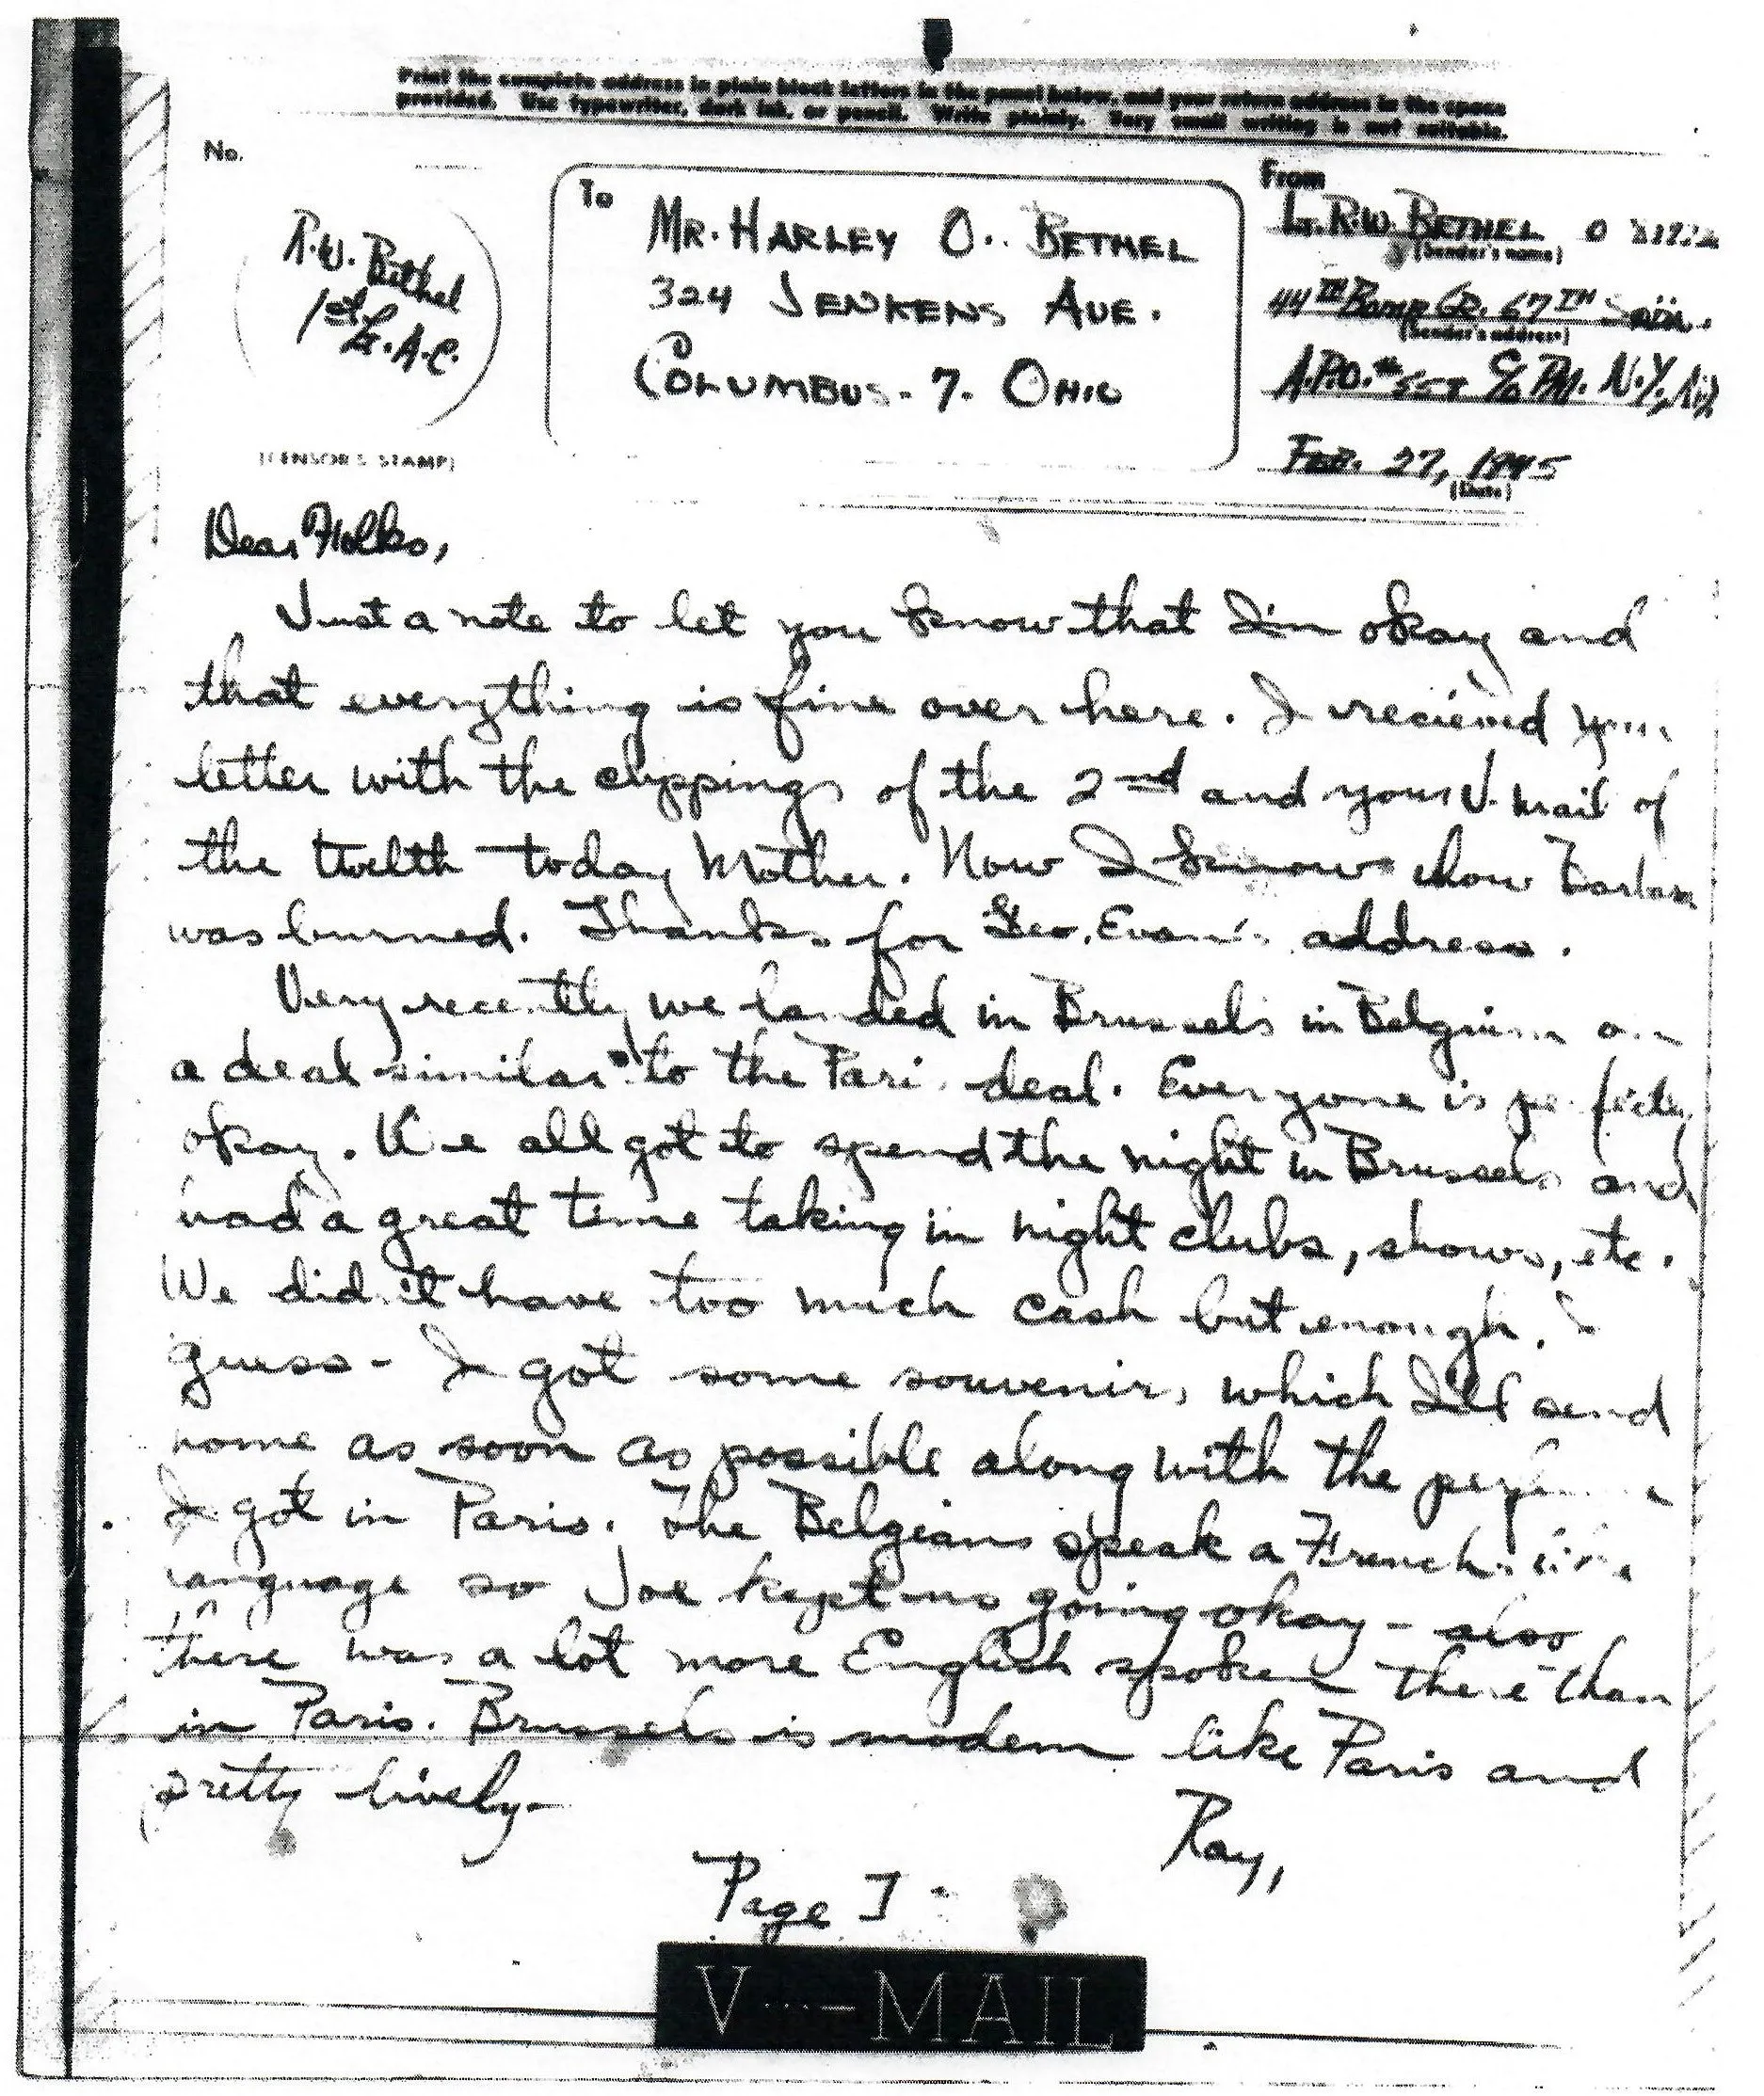 Print the complete address in plain block letters in the panel below, and your return address in the space
provided. Use typewriter, dark ink, or pencil. Write plainly. Very small writing is not suitable.
No.
R.W. Bethel
1st Lt. A.C.
(CENSOR'S STAMP)
To
MR. HARLEY O. BETHEL
324 JENKENS AVE.
COLUMBUS - 7. OHIO
From
LT. R.W. BETHEL O
(Sender's name)
44TH BOMB GR. 67TH
(Sender's address)
A.P.O. # 558 C/O P.M. N.Y., N.Y.
FEB. 27, 1945
(Date)
Dear Folks,
Just a note to let you know that I'm okay and
that everything is fine over here. I recieved your
letter with the clippings of the 2nd and your V-Mail of
the twelth today Mother. Now I know how
was burned. Thanks for Geo. Evan's address.
Very recently we landed in Brussels in Belgium on
a deal similar to the Paris deal. Everyone is perfectly
okay. We all got to spend the night in Brussels and
had a great time taking in night clubs, shows, etc.
We didn't have too much cash but enough, I
guess - I got some souvenirs which I'll send
home as soon as possible along with the perfume
I got in Paris. The Belgians speak a French like
language so Joe kept us going okay - also
there was a lot more English spoken there than
in Paris. Brussels is modern like Paris and
pretty lively -
Ray,
Page I -
V···-MAIL